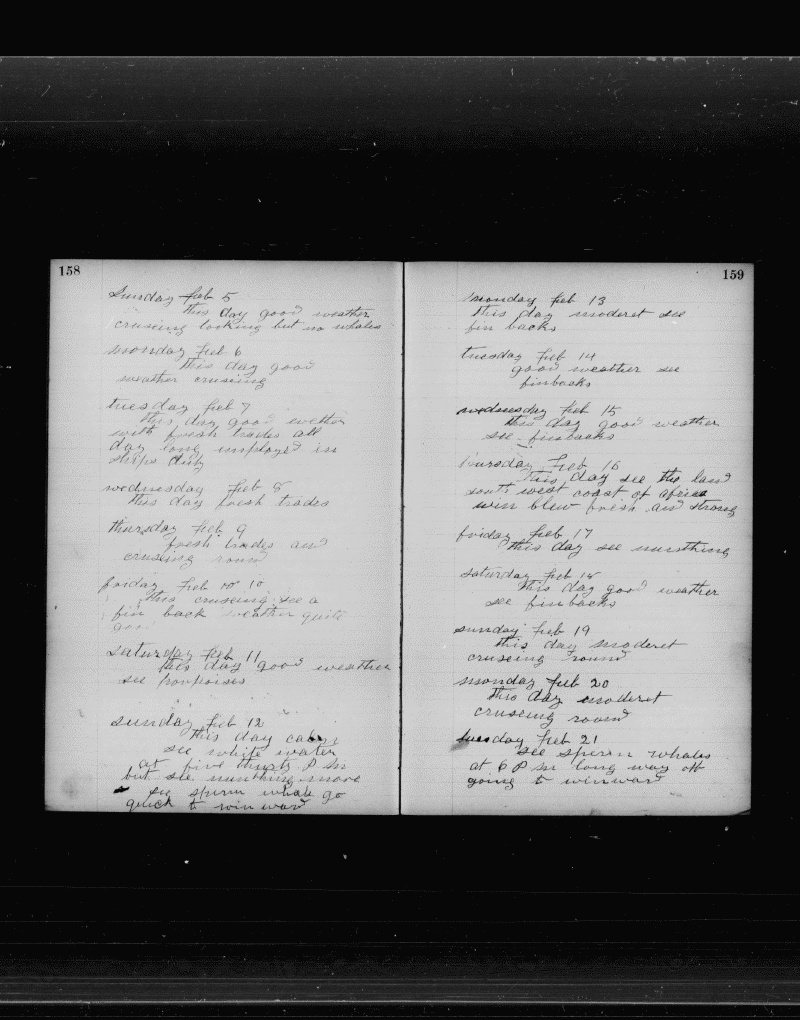 158
Sunday feb 5
this day good weather
cruseing looking but no whales
monday feb 6
this day good
weather cruseing
tuesday feb 7
this day good wether
with fresh trades all
day long imployed in
ships duty
wednesday feb 8
this day fresh trades
thursday feb 9
fresh trades and
cruseing round
friday feb 10
this cruseing see a
fin back weather quite
good
saturday feb 11
this day good weather
see porpoises
sunday feb 12
this day calm
see white water
at five thirty P m
but see nunthing more
see sperm whale go
quick to win ward
159
monday feb 13
this day moderet see
fin backs
tuesday feb 14
good weather see
finbacks
wednesday feb 15
this day good weather
see finbacks
thursday feb 16
this day see the land
south west coast of africa
win blew fresh and strong
friday feb 17
this day see nunthing
saturday feb 18
this day good weather
see finbacks
sunday feb 19
this day moderet
cruseing round
monday feb 20
this day moderet
cruseing round
tuesday feb 21
see sperm whales
at 6 P m long way off
going to win ward